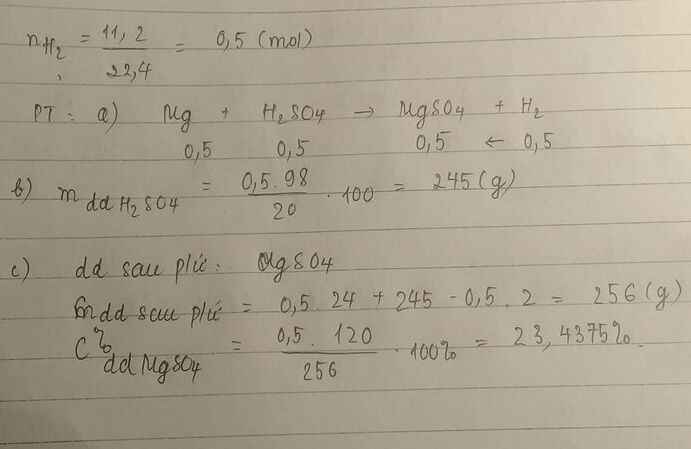 nH2 = 11,2/22,4 = 0,5 (mol)
PT: a) Mg + H2SO4 → MgSO4 + H2
0,5 0,5 0,5 ← 0,5
b) m dd H2SO4 = 0,5.98/20 . 100 = 245(g)
c) dd sau pứ: MgSO4
m dd sau pứ = 0,5.24 + 245 - 0,5.2 = 256(g)
C% dd MgSO4 = 0,5.120/256 . 100% = 23,4375%.